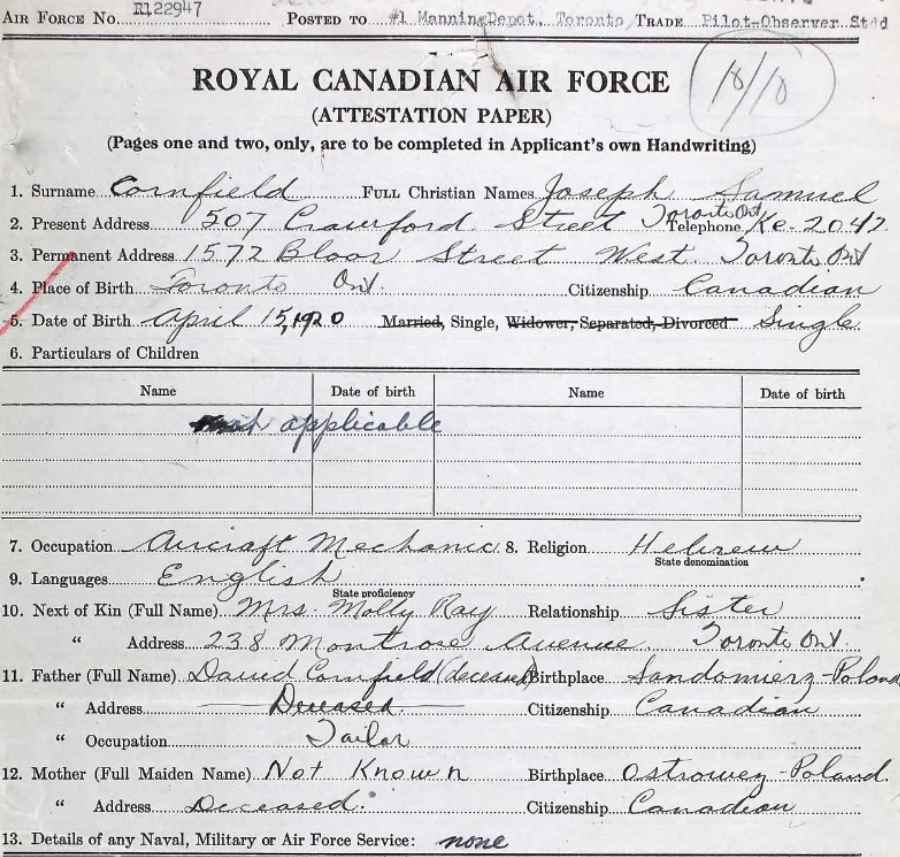 AIR FORCE NO. R122947 POSTED TO #1 ManningDepot. Toronto TRADE Pilot-Observer Std
ROYAL CANADIAN AIR FORCE
18/18
(ATTESTATION PAPER)
(Pages one and two, only, are to be completed in Applicant's own Handwriting)
1. Surname Cornfield FULL Christian Names Joseph Samuel
2. Present Address 507 Crawford Street Toronto Ont Telephone Ke-2042
3. Permanent Address 1572 Bloor Street West. Toronto Ont
4. Place of Birth Toronto Ont. Citizenship Canadian
5. Date of Birth April 15, 1920 Married, Single, Widower, Separated, Divorced Single.
6. Particulars of Children
Name Date of birth Name Date of birth
not applicable
7. Occupation Aircraft Mechanic 8. Religion Hebrew
State denomination
9. Languages English
State proficiency
10. Next of Kin (Full Name) Mrs. Molly Ray Relationship Sister
" Address 238 Montrose Avenue. Toronto Ont.
11. Father (Full Name) David Cornfield (deceased) Birthplace Sandomierz-Poland
" Address Deceased. Citizenship Canadian
" Occupation Tailor
12. Mother (Full Maiden Name) Not Known Birthplace Ostrowez-Poland.
" Address Deceased. Citizenship Canadian
13. Details of any Naval, Military or Air Force Service: none